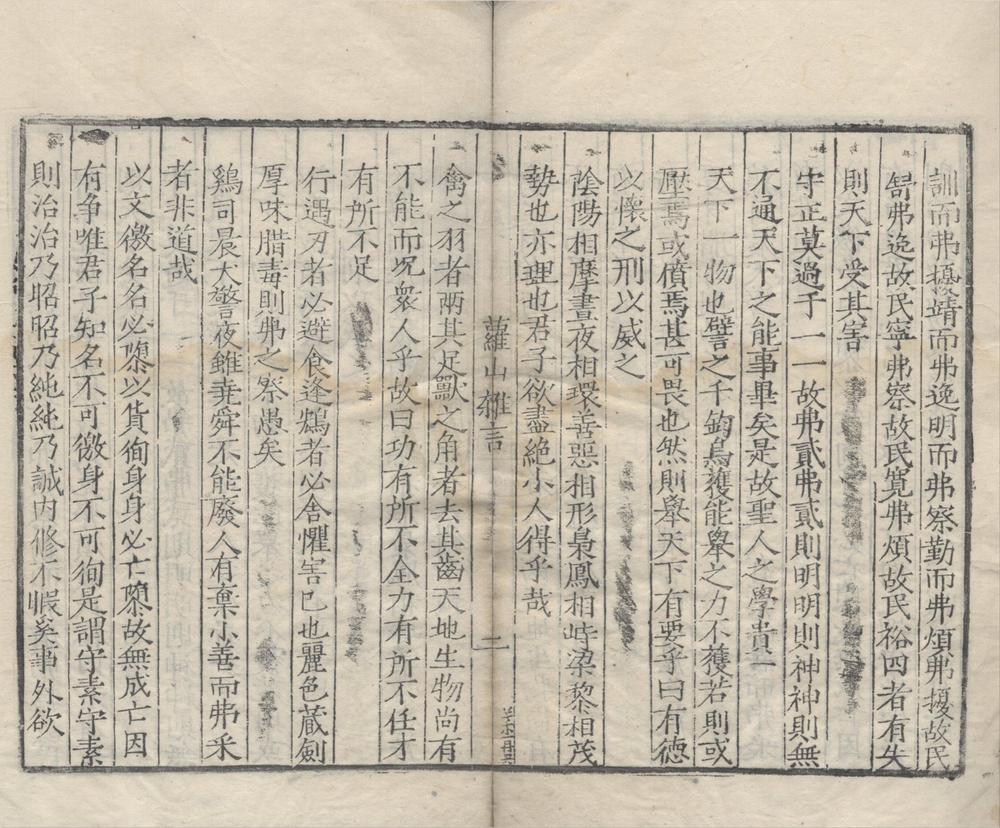 訓而弗擾靖而弗逸明而弗察勤而弗煩弗擾故民
舒弗逸故民寧弗察故民寬弗煩故民裕四者有失
則天下受其害
守正莫過于一一故弗貳弗貳則明明則神神則無
不通天下之能事畢矣是故聖人之學貴一
天下一物也譬之千鈞烏獲能舉之力不獲若則或
壓焉或僨焉甚可畏也然則舉天下有要乎曰有德
以懷之刑以威之
陰陽相摩晝夜相環善惡相形梟鳳相峙粱黎相茂
勢也亦理也君子欲盡絕小人得乎哉
蘿山雜言
二
禽之羽者兩其足獸之角者去其齒天地生物尚有
不能而况衆人乎故曰功有所不全力有所不任才
有所不足
行遇刃者必避食逢鴆者必舍懼害已也麗色藏劍
厚味腊毒則弗之察愚矣
鷄司晨犬警夜雖堯舜不能廢人有棄小善而弗采
者非道哉
以文徼名名必隳以貨徇身身必亡隳故無成亡因
有爭唯君子知名不可徼身不可徇是謂守素守素
則治治乃昭昭乃純純乃誠内修不暇奚事外欲